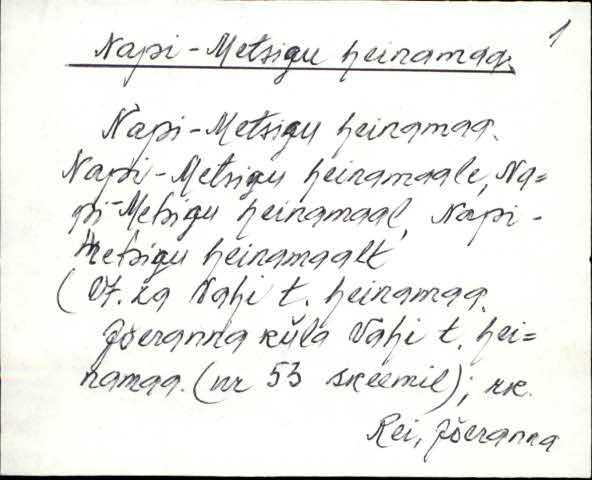 1
Napi-Metsigu heinamaa.
Napi-Metsigu heinamaa.
Napi-Metsigu heinamaale, Na=
pi-Metsigu heinamaal, Napi-
Metsigu heinamaalt
(Vt. ka Vahi t. heinamaa.
Jõeranna küla Vahi t. hei=
namaa. (nr 53 skeemil); rk.
Rei, Jõeranna